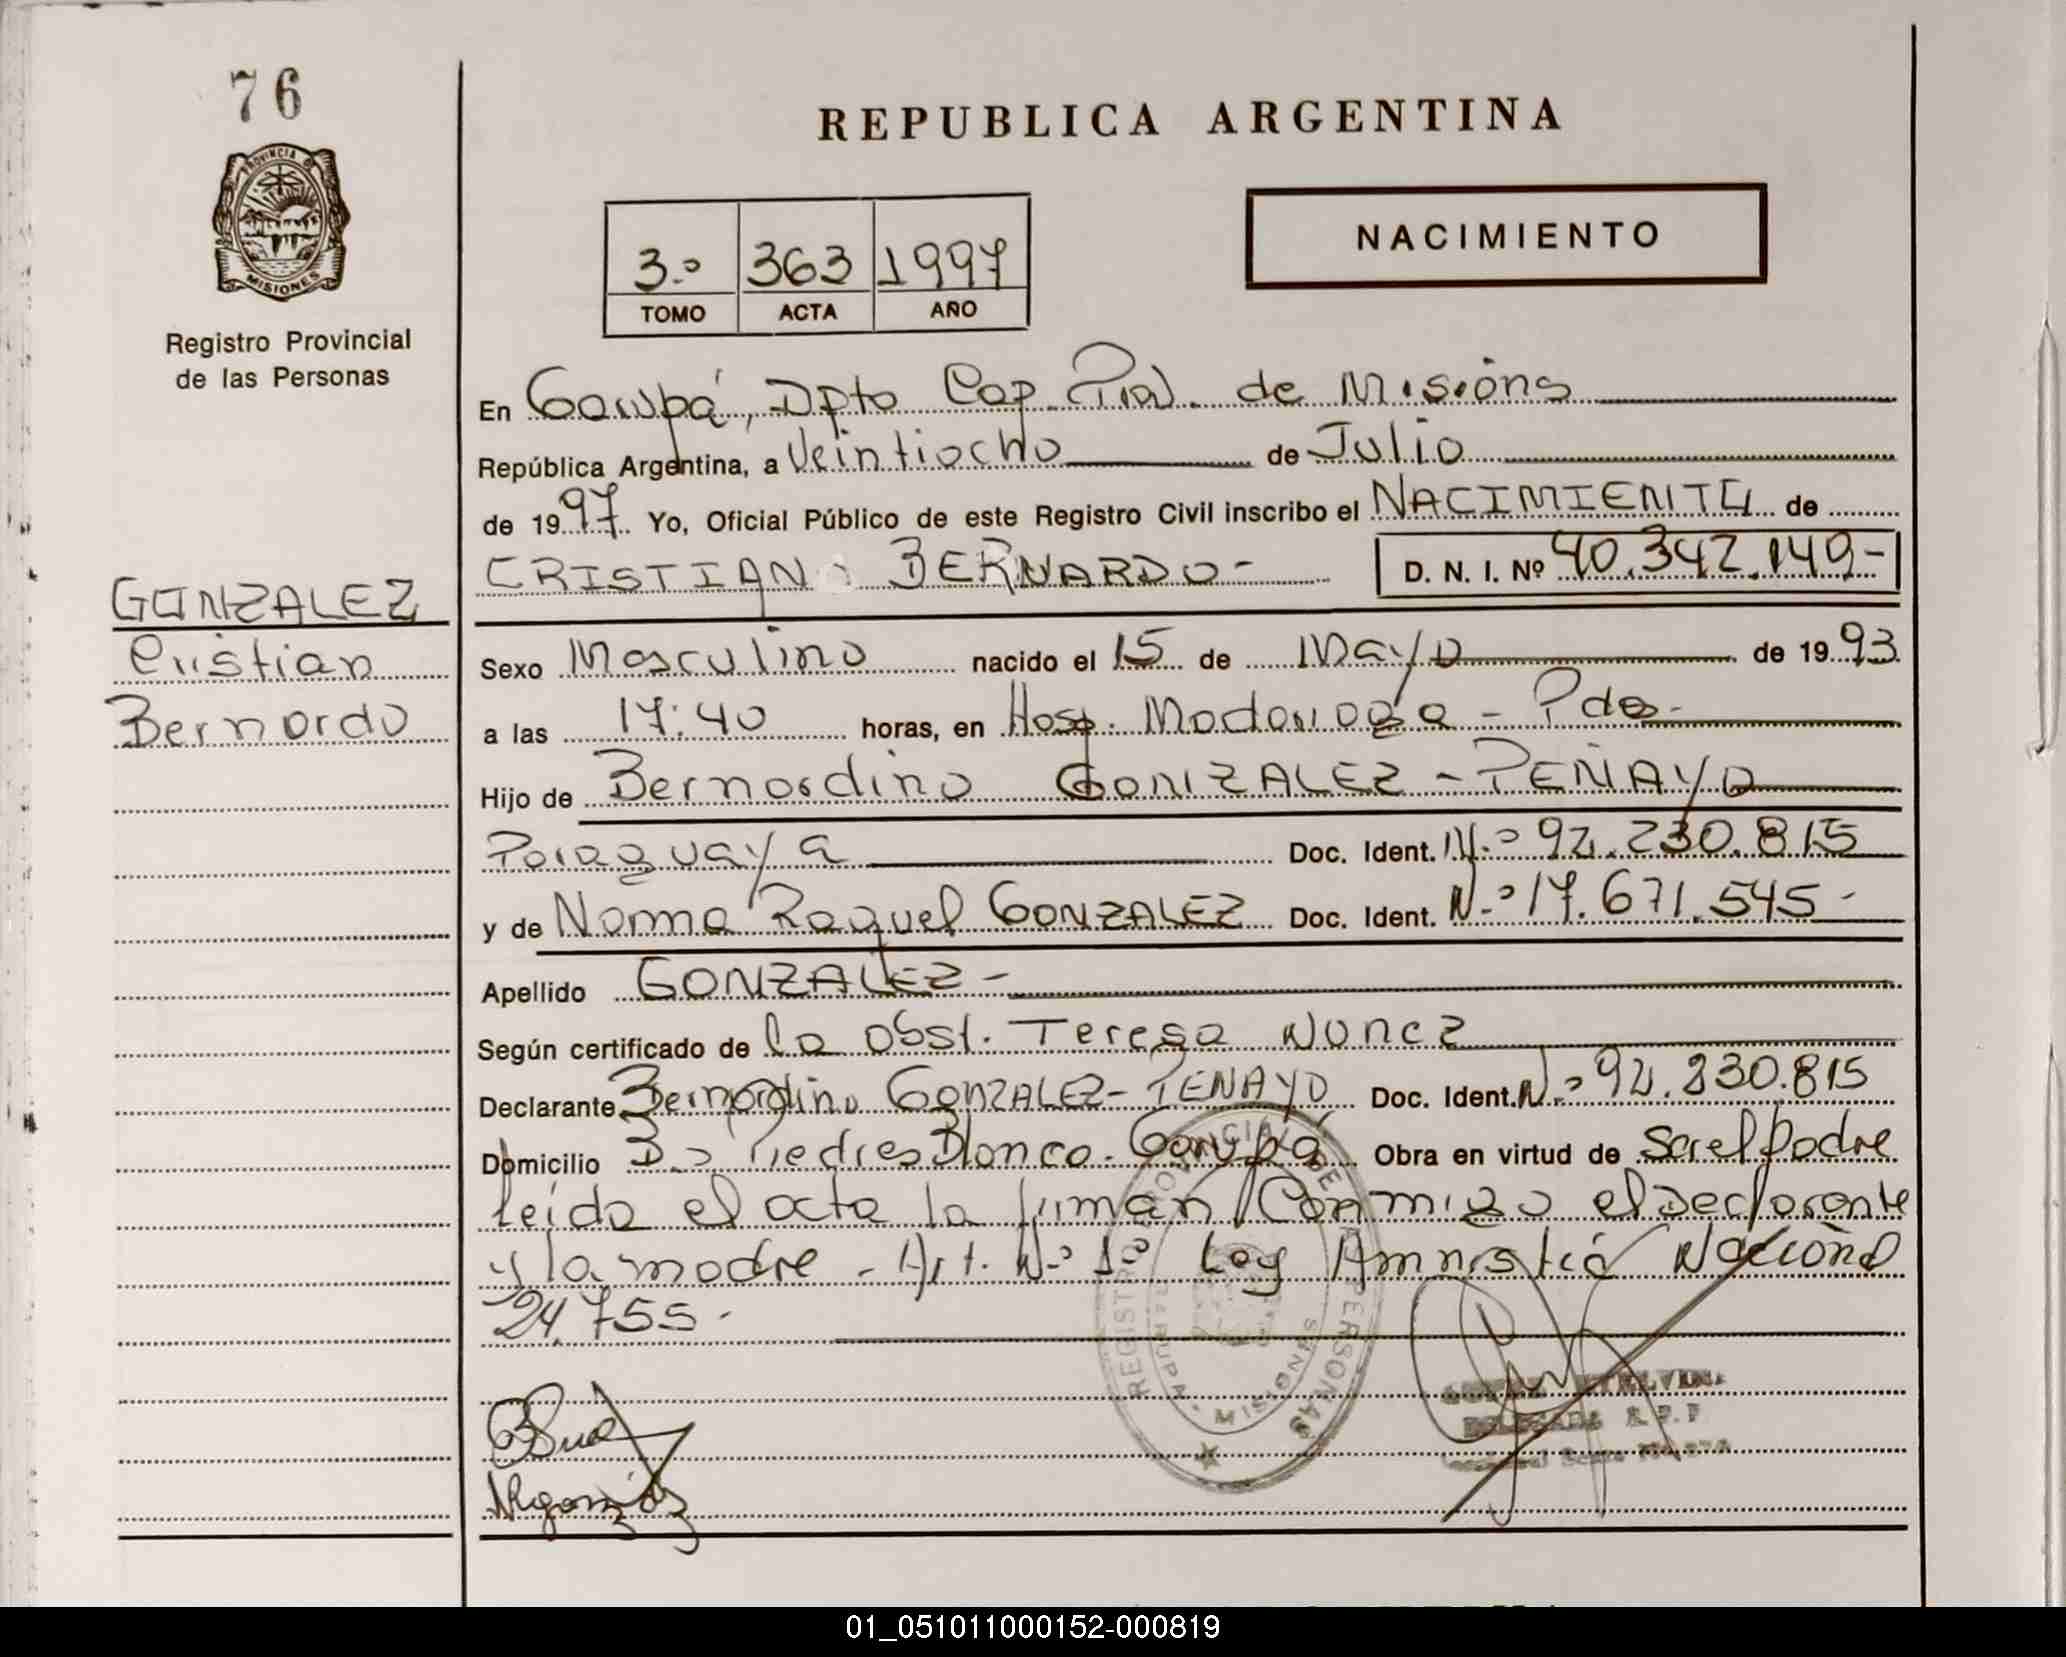 76
PROVINCIA DE
MISIONES
Registro Provincial
de las Personas
REPUBLICA ARGENTINA
NACIMIENTO
3.º 363 1997
TOMO ACTA AÑO
En Garupá, Dpto Cap. Pcia. de Misións
República Argentina, a Veintiocho de Julio
de 1997 Yo, Oficial Público de este Registro Civil inscribo el NACIMIENTO de
CRISTIAN BERNARDO- D. N. I. Nº 40.342.149-
GONZALEZ
Cristian
Bernardo
Sexo Masculino nacido el 15 de Mayo de 1993
a las 17:40 horas, en Hosp. Madariaga - Pdas-
Hijo de Bernardino GONZALEZ - PENAYO
Paraguaya Doc. Ident. N.º 92.230.815
y de Norma Raquel GONZALEZ Doc. Ident. N.º 17.671.545-
Apellido GONZALEZ-
Según certificado de la Obst. Teresa Nunez
Declarante Bernardino GONZALEZ-PENAYO Doc. Ident. N.º 92.230.815
Domicilio B.º Piedras Blanca. Garupá Obra en virtud de Ser el padre
leída el acta la firman Conmigo el Declarante
y la madre - Art. N.º 1º Ley Amnistía Nacional
24.755-
REGISTRO PROVINCIAL DE PERSONAS
MISIONES
DELEGADA R.P.P
01_051011000152-000819